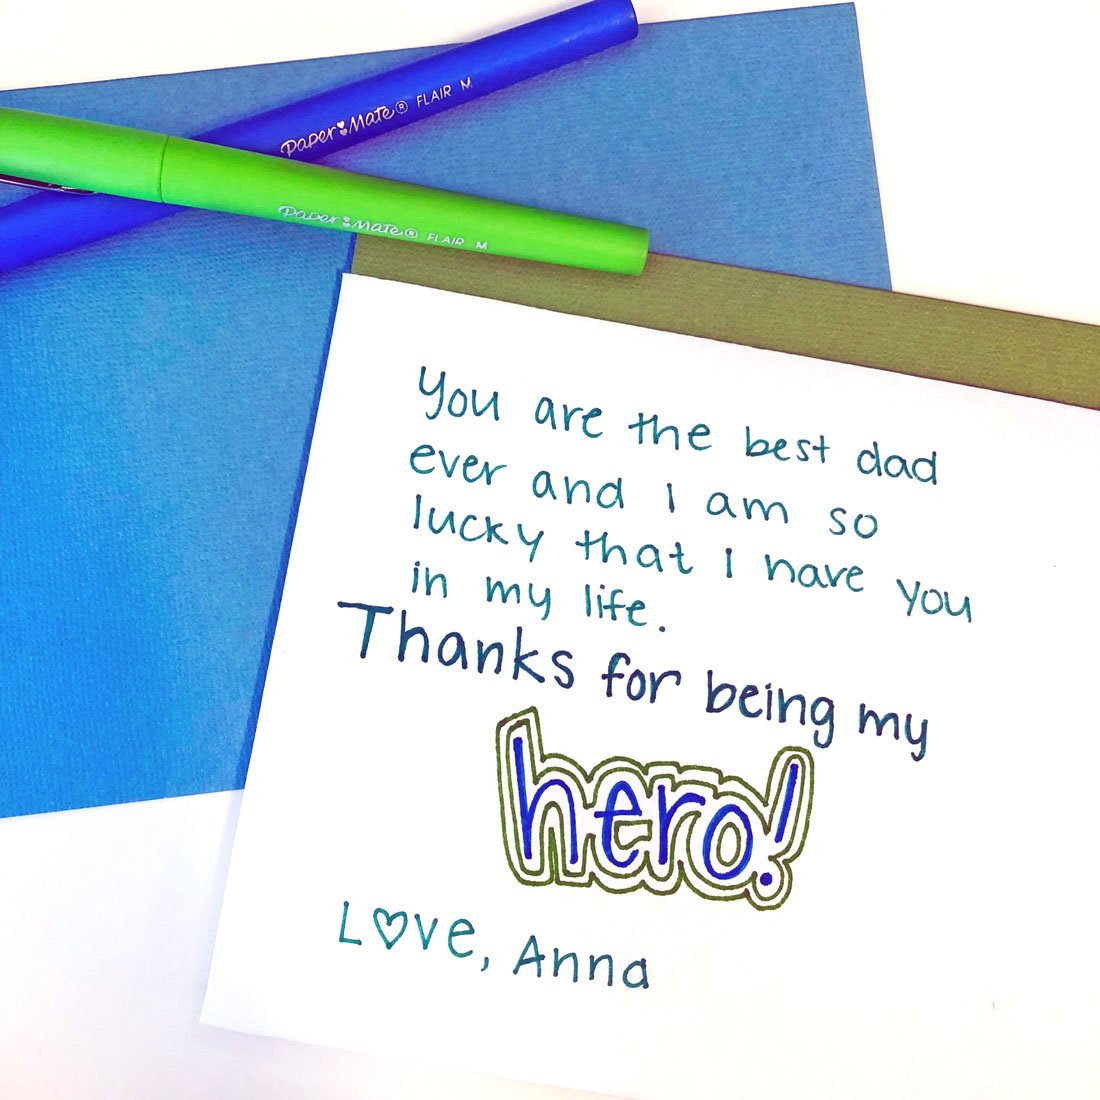 Paper Mate® FLAIR M
Paper Mate® FLAIR M
You are the best dad
ever and I am so
lucky that I have you
in my life.
Thanks for being my
hero!
Love, Anna